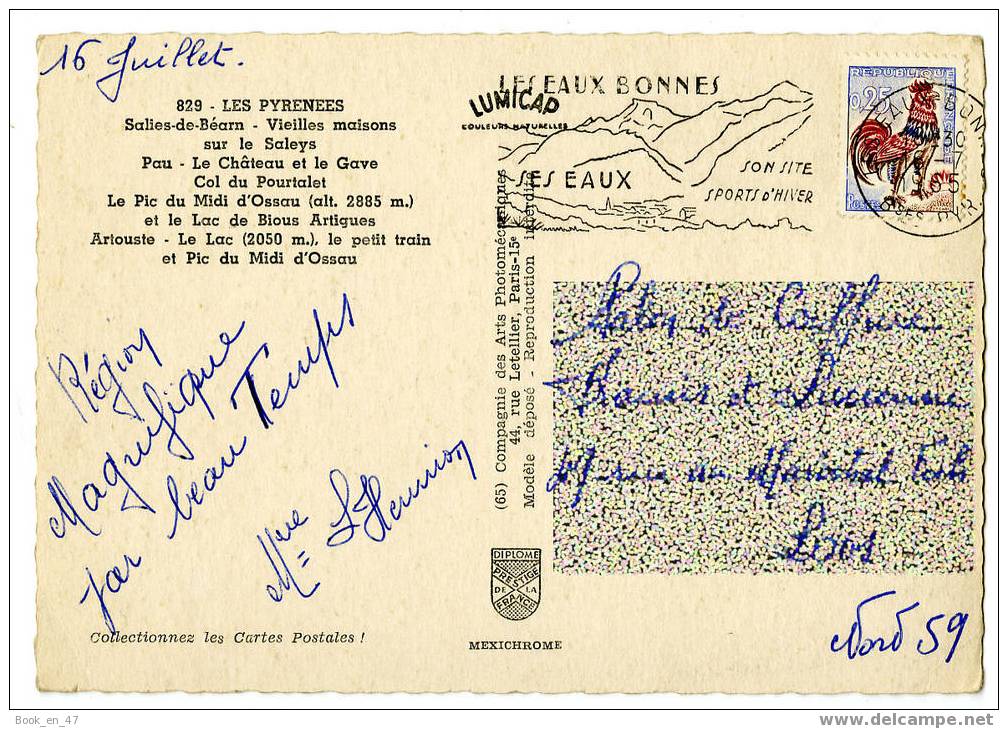 16 Juillet.
829 - LES PYRENEES
Salies-de-Béarn - Vieilles maisons
sur le Saleys
Pau - Le Château et le Gave
Col du Pourtalet
Le Pic du Midi d'Ossau (alt. 2885 m.)
et le Lac de Bious Artigues
Artouste - Le Lac (2050 m.), le petit train
et Pic du Midi d'Ossau
Région
Magnifique
par beau Temps
Mme
Collectionnez les Cartes Postales !
LES EAUX BONNES
LUMICAP
COULEURS NATURELLES
SES EAUX
SON SITE
SPORTS D'HIVER
REPUBLIQUE
FRANÇAISE
0,25
Postes
(65) Compagnie des Arts Photomécaniques
44, rue Letellier, Paris-15e
Modèle déposé - Reproduction interdite
DIPLOME
PRESTIGE
DE LA
FRANCE
MEXICHROME
Salon de Coiffure
et
Loos
Nord 59
Book_en_47
www.delcampe.net